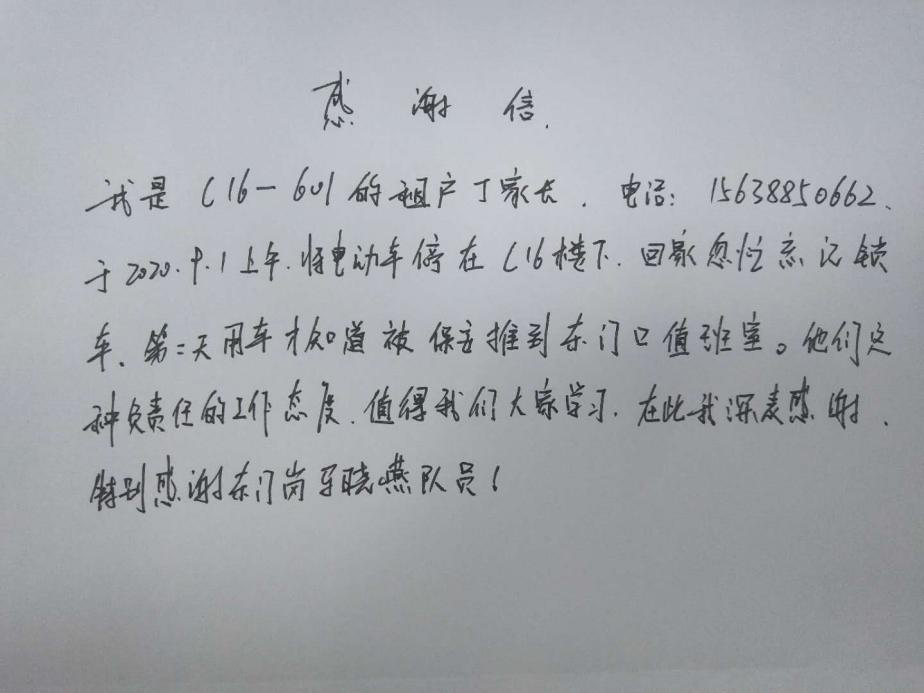 感谢信.
我是C16-601的租户丁家长.电话:15638850662.
于2020.9.1上午.将电动车停在C16楼下.回家忽忙忘记锁
车、第二天用车才知道被保安推到东门口值班室。他们这
种负责任的工作态度.值得我们大家学习.在此我深表感谢.
特别感谢东门岗马晓燕队员!